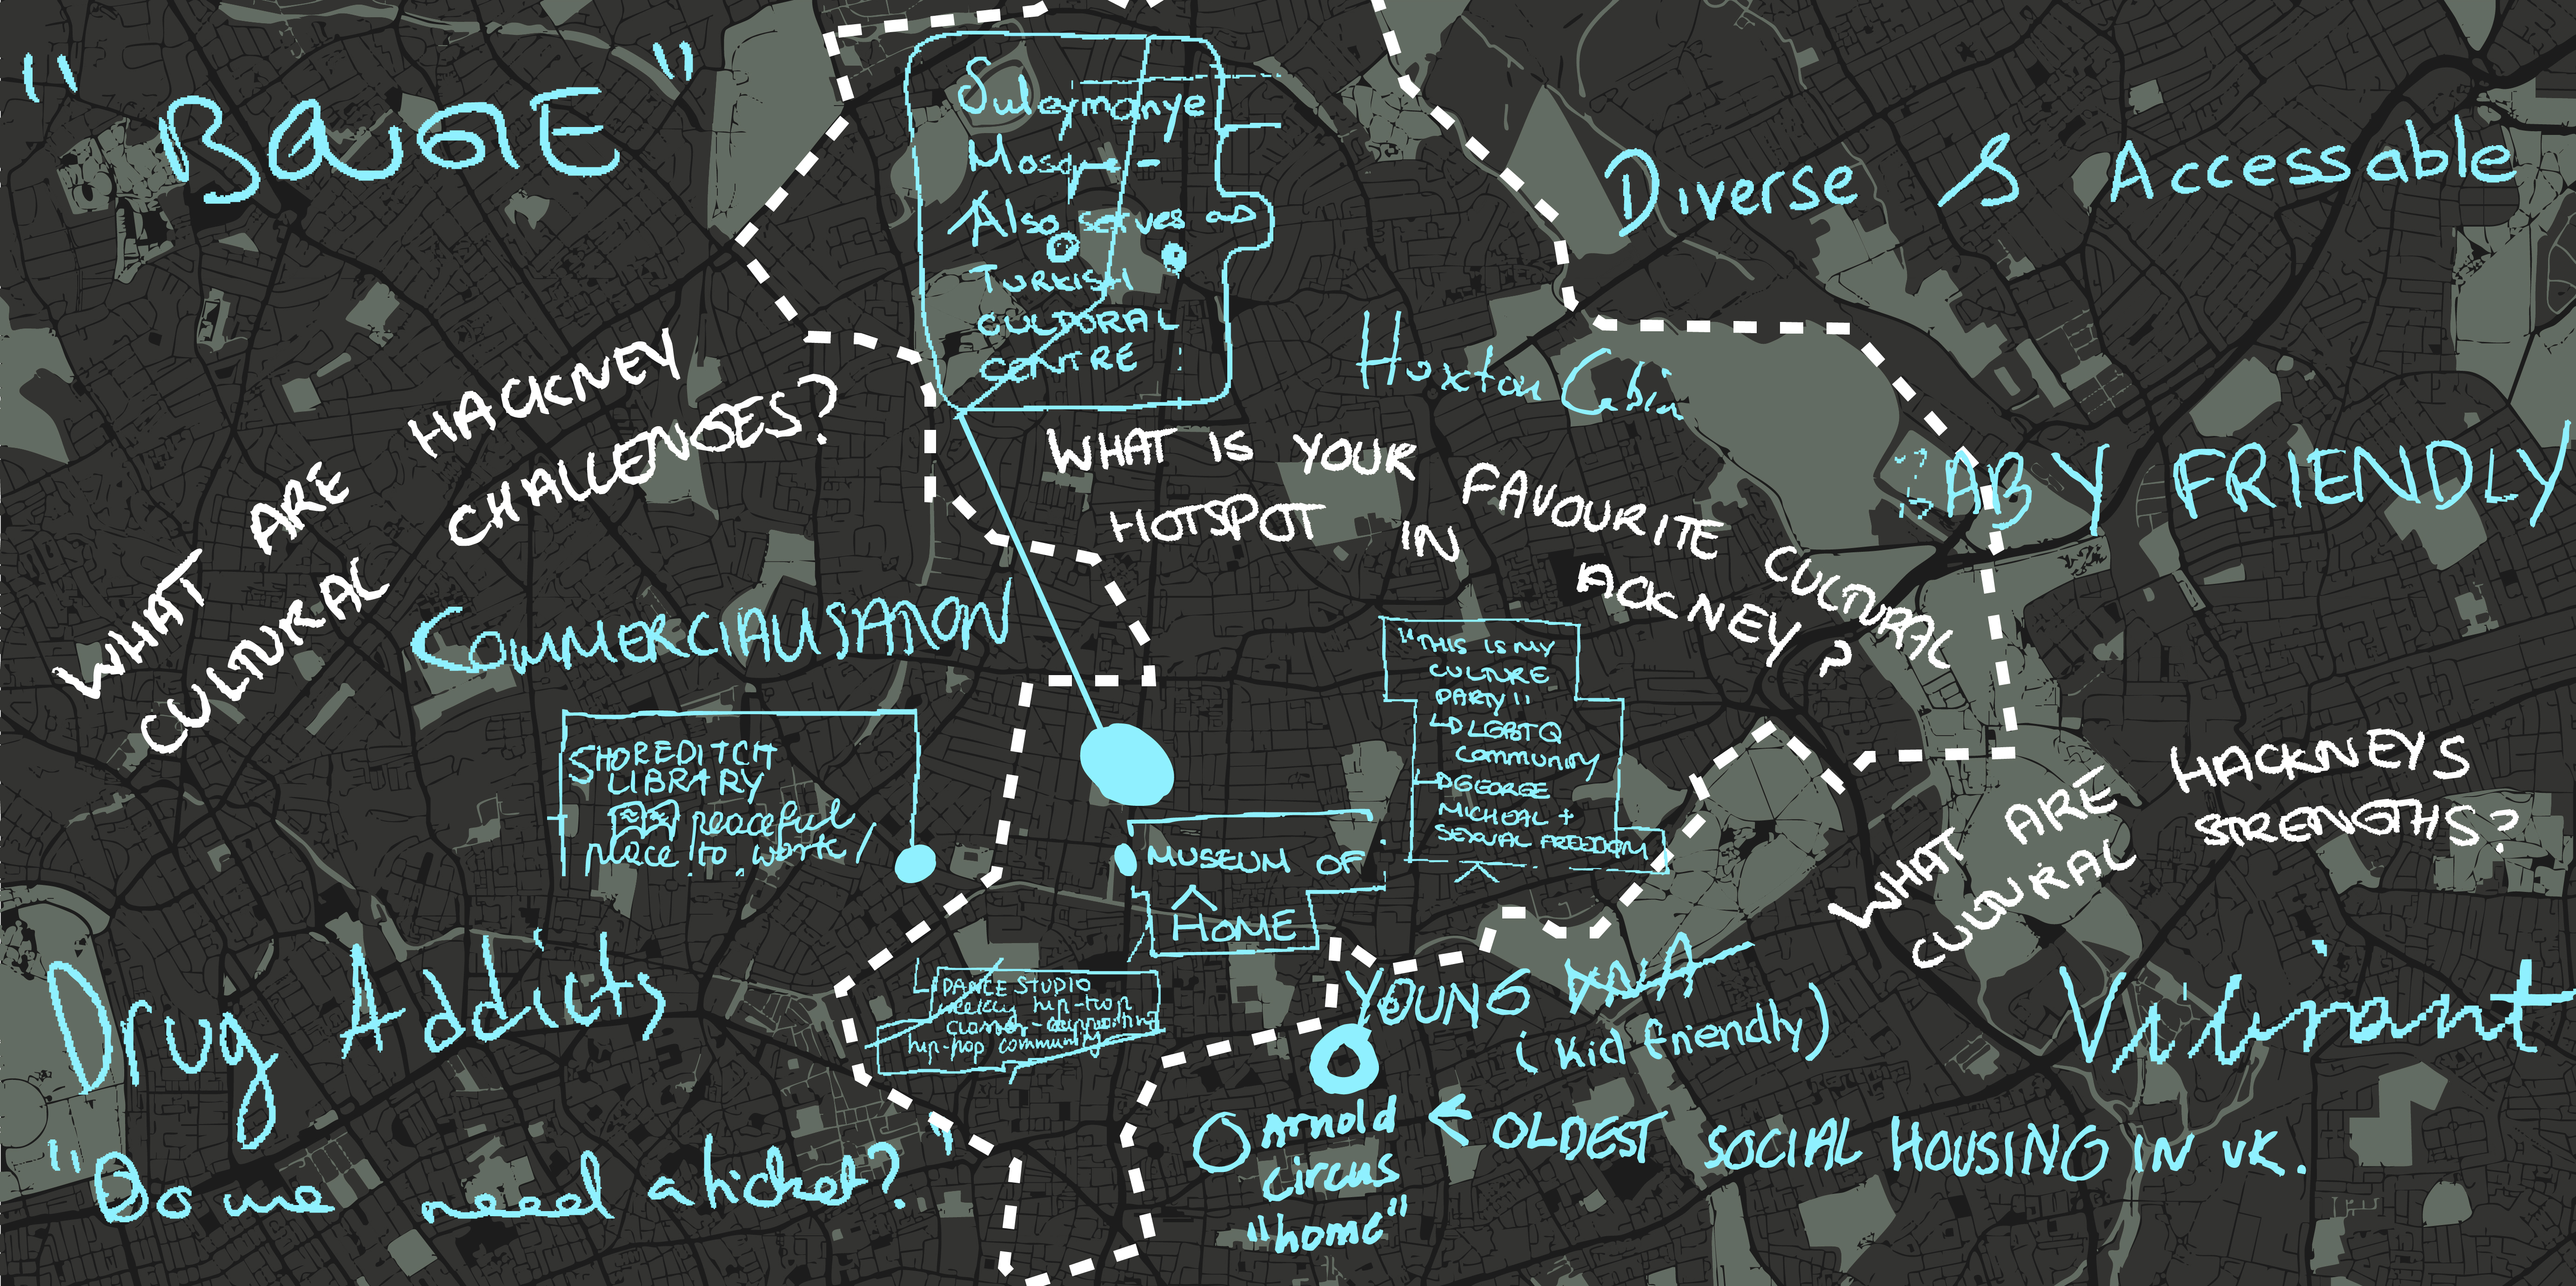 "BEIGE"
Suleymanye
Mosque -
Also serves as
TURKISH
CULTURAL
CENTRE
Diverse & Accessable
WHAT ARE HACKNEY
CULTURAL CHALLENGES?
Hoxton Cabin
WHAT IS YOUR FAVOURITE CULTURAL
HOTSPOT IN ACKNEY?
BABY FRIENDLY
COMMERCIALISATION
SHOREDITCH
LIBRARY
peaceful
place to work
"THIS IS MY
CULTURE
PARTY"
LGBTQ
COMMUNITY
GEORGE
MICHEAL +
SEXUAL FREEDOM
MUSEUM OF
HOME
WHAT ARE HACKNEYS
CULTURAL STRENGTHS?
Drug Addicts
DANCE STUDIO
weekly hip-hop
classes - supporting
hip-hop community
YOUNG V&A
(kid friendly)
Vibrant
"Do we need a ticket?"
Arnold
circus
"home"
← OLDEST SOCIAL HOUSING IN UK.